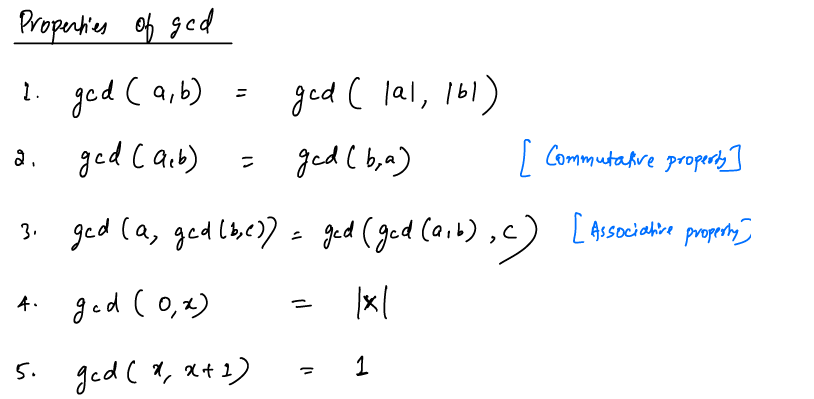 Properties of gcd
1. gcd ( a,b) = gcd ( |a|, |b|)
2. gcd ( a,b) = gcd ( b,a) [ Commutative property]
3. gcd (a, gcd (b,c)) = gcd (gcd (a,b) , c) [ Associative property]
4. gcd ( 0,x) = |x|
5. gcd ( x, x+1) = 1